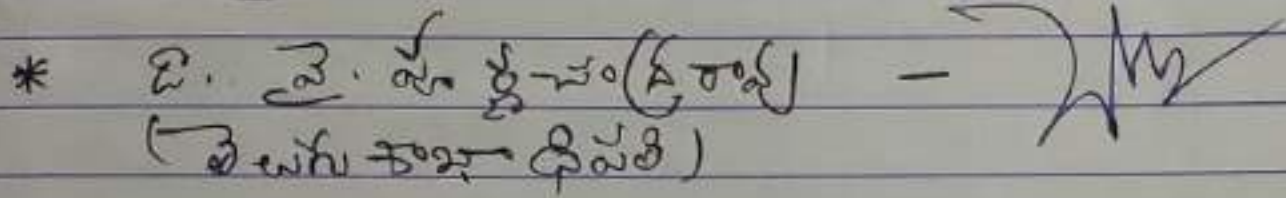 * పి. వై. పూర్ణచంద్రరావు -
(తెలుగు శాఖాధిపతి)